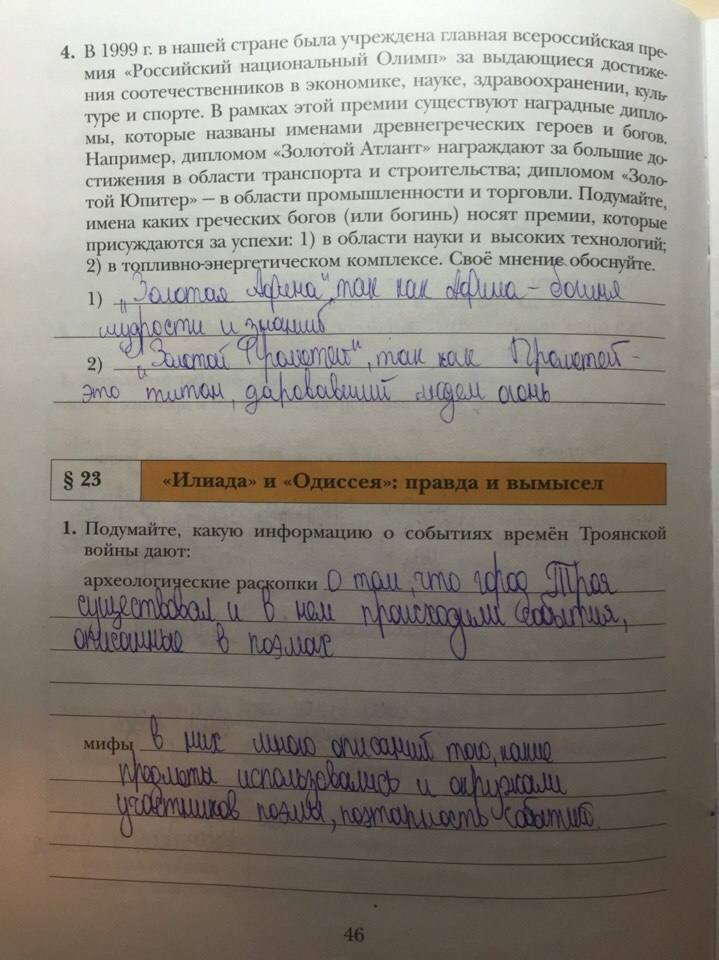 4. В 1999 г. в нашей стране была учреждена главная всероссийская пре-
мия «Российский национальный Олимп» за выдающиеся достиже-
ния соотечественников в экономике, науке, здравоохранении, куль-
туре и спорте. В рамках этой премии существуют наградные дипло-
мы, которые названы именами древнегреческих героев и богов.
Например, дипломом «Золотой Атлант» награждают за большие до-
стижения в области транспорта и строительства; дипломом «Золо-
той Юпитер» – в области промышленности и торговли. Подумайте,
имена каких греческих богов (или богинь) носят премии, которые
присуждаются за успехи: 1) в области науки и высоких технологий;
2) в топливно-энергетическом комплексе. Своё мнение обоснуйте.
1) „Золотая Афина", так как Афина – богиня
мудрости и знаний
2) „Золотой Прометей", так как Прометей –
это титан, даровавший людем огонь
§ 23 «Илиада» и «Одиссея»: правда и вымысел
1. Подумайте, какую информацию о событиях времён Троянской
войны дают:
археологические раскопки О том, что город Троя
существовал и в нем происходили события,
описанные в поэмах
мифы в них много описаний того, какие
предметы использовались и окружали
участников поэмы, поэтапность событий.
46